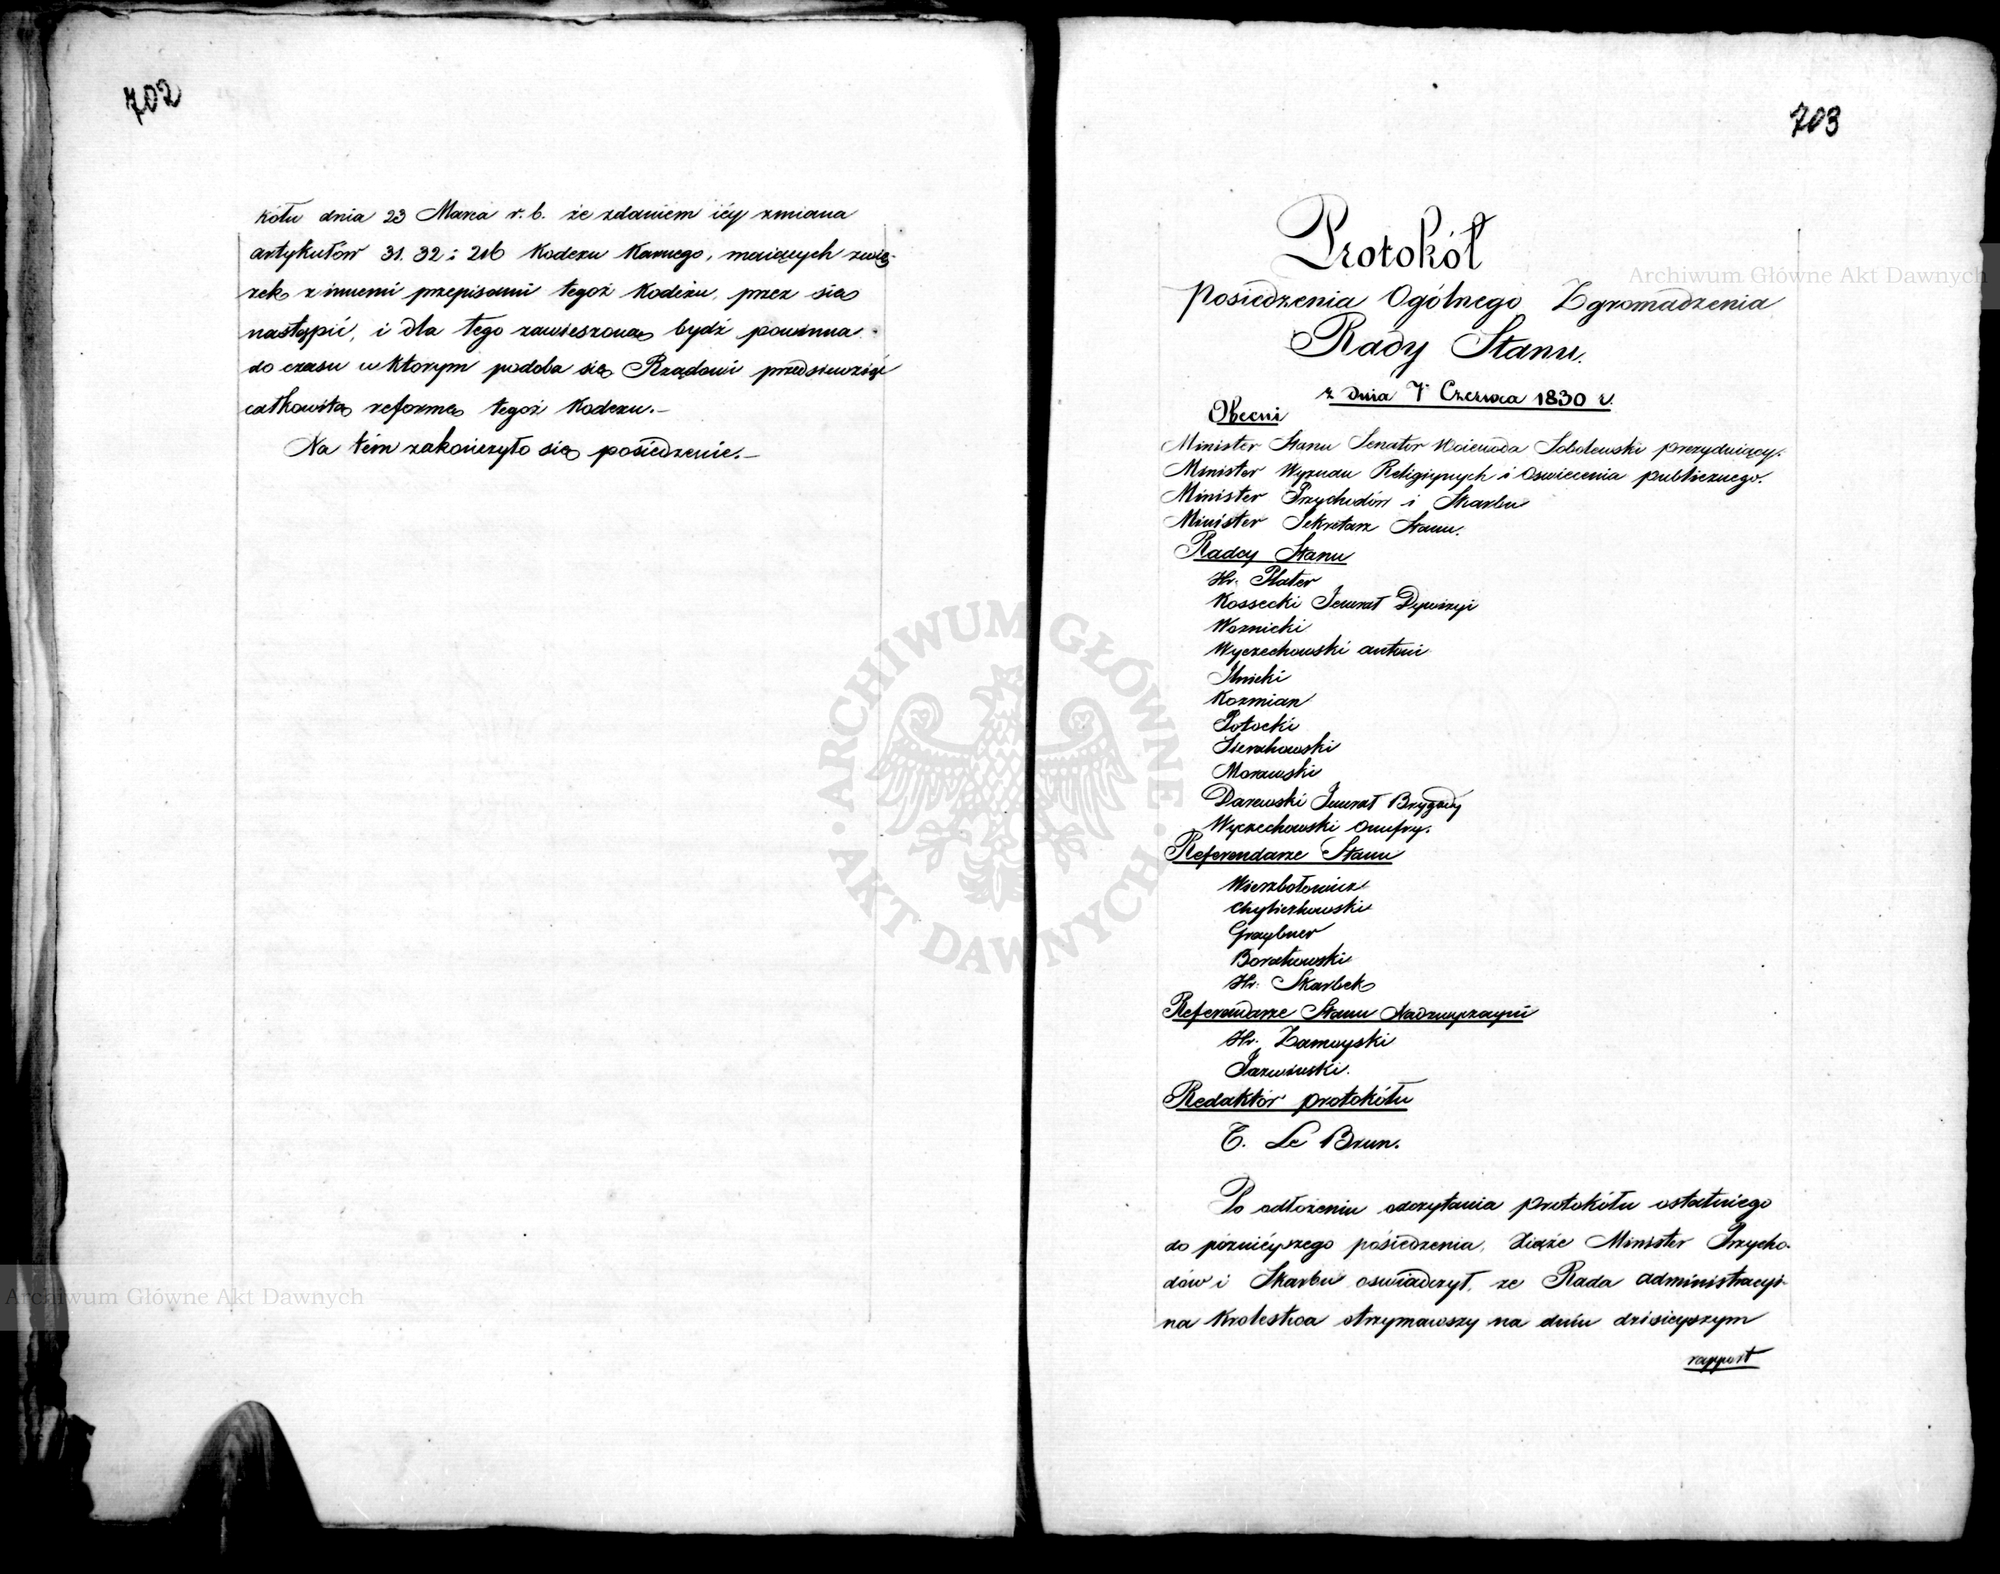 702
kółu dnia 23 Marca r. b. że zdaniem iéy zmiana
artykułów 31. 32 i 216 Kodexu Karnego, maiących zwią-
zek z innemi przepisami tegoż Kodexu, przez się
nastąpić, i dla tego zawieszona bydź powinna
do czasu w którym podoba się Rządowi przedsięwziąć
całkowitą reformę tegoż Kodexu.—
Na tém zakończyło się posiedzenie.—
703
Protokół
Posiedzenia Ogólnego Zgromadzenia
Rady Stanu.
z dnia 7 Czerwca 1830 r.
Obecni
Minister Stanu Senator Woiewoda Sobolewski prezyduiący.
Minister Wyznań Religiynych i Oświecenia publicznego.
Minister Przychodów i Skarbu
Minister Sekretarz Stanu.
Radcy Stanu
Hr. Plater
Kossecki Jenerał Dywizyi
Woznicki
Wyczechowski Antoni
Ilnicki
Kozmian
Potocki
Sierakowski
Morawski
Darewski Jenerał Brygady
Wyczechowski Onufry.
Referendarze Stanu
Wierzbołowicz
Chylickowski
Graybner
Borakowski
Hr. Skarbek
Referendarze Stanu Nadzwyczayni
Hr. Zamoyski
Jazwiński.
Redaktór protokółu
T. Le Brun.
Po odłożeniu odczytania protokółu ostatniego
do pózniéyszego posiedzenia, Xiąże Minister Przycho-
dów i Skarbu oświadczył, że Rada Administracyi-
na Królestwa otrzymawszy na dniu dzisieyszym
rapport
Archiwum Główne Akt Dawnych
Archiwum Główne Akt Dawnych
ARCHIWUM GŁÓWNE
AKT DAWNYCH